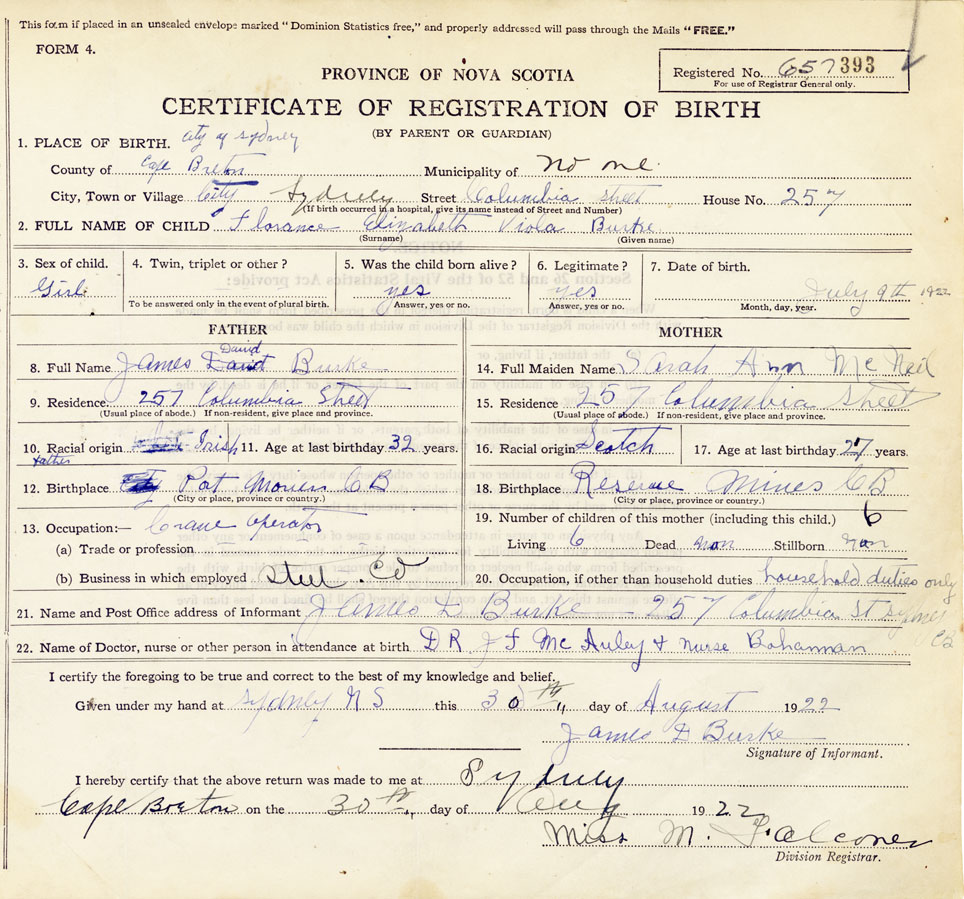 This form if placed in an unsealed envelope marked "Dominion Statistics free," and properly addressed will pass through the Mails "FREE."
FORM 4.
PROVINCE OF NOVA SCOTIA
Registered No. 657393
For use of Registrar General only.
CERTIFICATE OF REGISTRATION OF BIRTH
(BY PARENT OR GUARDIAN)
1. PLACE OF BIRTH. City of Sydney
County of Cape Breton Municipality of no one.
City, Town or Village City Sydney Street Columbia street House No. 257
(If birth occurred in a hospital, give its name instead of Street and Number)
2. FULL NAME OF CHILD Florance Elizabeth Viola Burke
(Surname) (Given name)
3. Sex of child. 4. Twin, triplet or other? 5. Was the child born alive? 6. Legitimate? 7. Date of birth.
Girl yes yes July 9th 1922
To be answered only in the event of plural birth. Answer, yes or no. Answer, yes or no. Month, day, year.
FATHER
8. Full Name James David Burke
9. Residence 257 Columbia Street
(Usual place of abode.) If non-resident, give place and province.
10. Racial origin Irish 11. Age at last birthday 32 years.
father
12. Birthplace Port Morien CB
(City or place, province or country.)
13. Occupation:— Crane operator
(a) Trade or profession
(b) Business in which employed Steel. Co
MOTHER
14. Full Maiden Name Sarah Ann McNeil
15. Residence 257 Columbia Street
(Usual place of abode.) If non-resident, give place and province.
16. Racial origin Scotch 17. Age at last birthday 27 years.
18. Birthplace Reserve Mines CB
(City or place, province or country.)
19. Number of children of this mother (including this child.) 6
Living 6 Dead non Stillborn non
20. Occupation, if other than household duties household duties only
21. Name and Post Office address of Informant James D Burke – 257 Columbia St Sydney CB
22. Name of Doctor, nurse or other person in attendance at birth DR J F McAuley + nurse Bohannan
I certify the foregoing to be true and correct to the best of my knowledge and belief.
Given under my hand at Sydney N S this 30th day of August 1922
James D Burke
Signature of Informant.
I hereby certify that the above return was made to me at Sydney
Cape Breton on the 30th day of Aug 1922
Miss M. Falconer
Division Registrar.